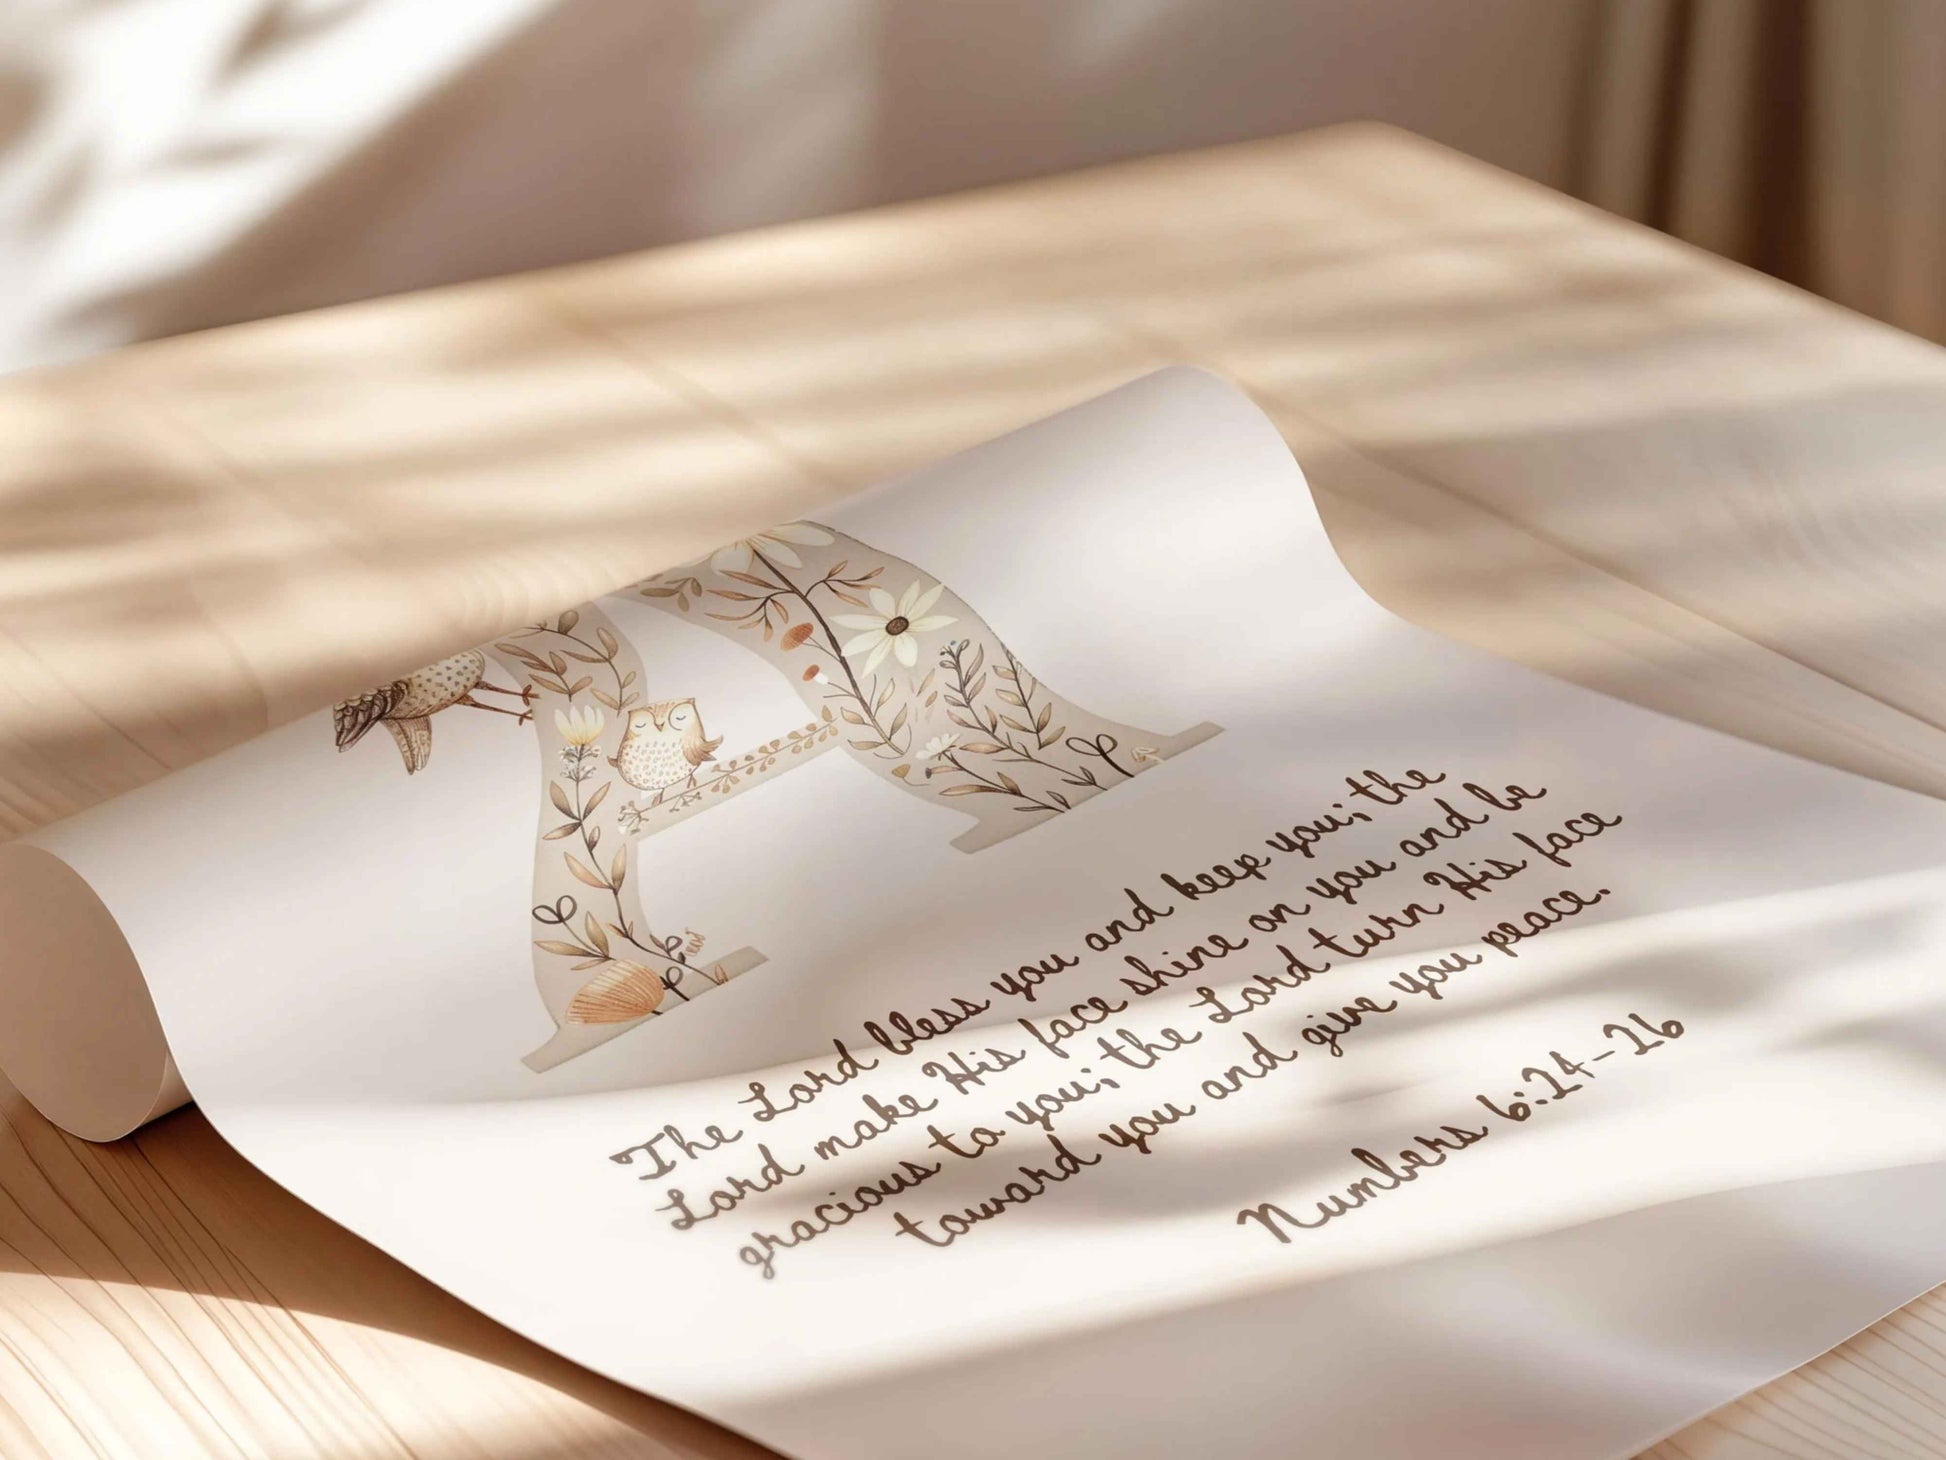 A
The Lord bless you and keep you; the
Lord make His face shine on you and be
gracious to you; the Lord turn His face
toward you and give you peace.
Numbers 6:24-26